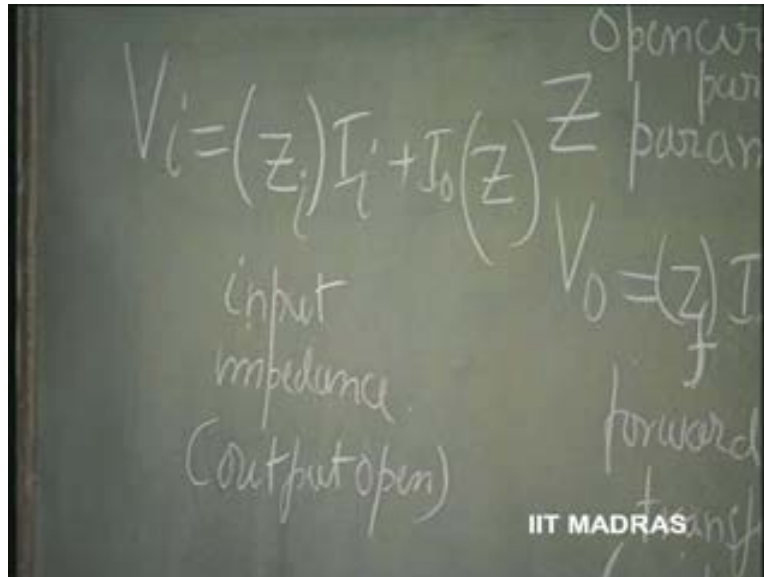 Vi = (Zi) Ii + Io (Z)
input
impedance.
(output open)
Opencir
par
Z param
Vo = (Zf) I
forward
transf
IIT MADRAS